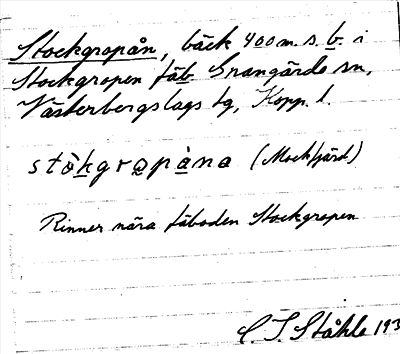 Stockgropån, bäck 400 m. s. b. i
Stockgropen fäb. Grangärde sn,
Västerbergslags tg, Kopp. l.
stòkgropàna (Mockfjärd)
Rinner nära fäboden Stockgropen
C. I. Ståhle 193